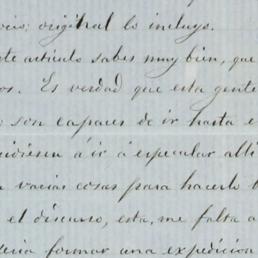 original lo incluyo.
te articulo sabes muy bien, que
os. Es verdad que esta gente
son capaces de ir hasta e
udiesen á ir á especular alli
n varias cosas para hacerlo t
el discurso, esta, me falta a
eria formar una expedicion